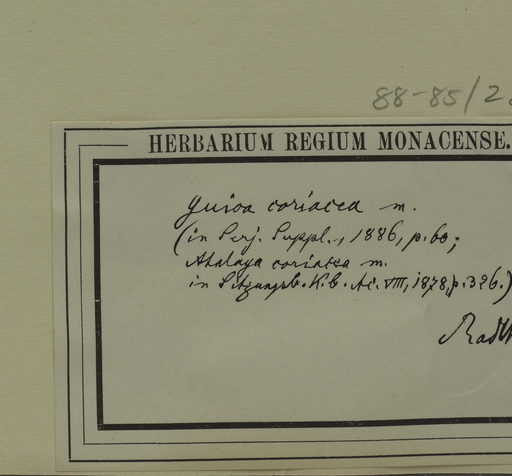 88-85/2
HERBARIUM REGIUM MONACENSE.
Guioa coriacea m.
(in Serj. Suppl., 1886, p. 60;
Atalaya coriacea m.
in Sitzungsb. K. b. Ac. VIII, 1878, p. 326.)
Radlk